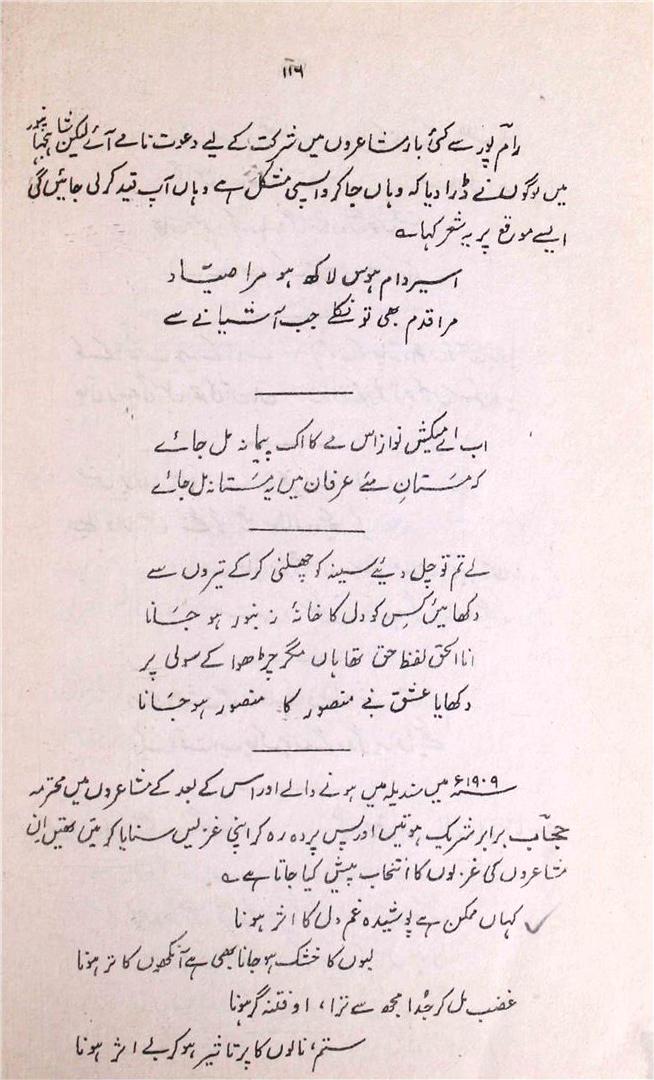 ۱۱۶
رام پور سے کئی بار مشاعروں میں شرکت کے لیے دعوت نامے آئے لیکن شاہجہانپور
میں لوگوں نے ڈرا دیا کہ وہاں جا کر واپسی مشکل ہے وہاں آپ قید کر لی جائیں گی
ایسے موقع پر یہ شعر کہا ہے
اسیر دام ہوس لاکھ ہو مرا صیّاد
مرا قدم بھی تو نکلے جب آشیانے سے
اب اے میکش نواز اس مے کا اک پیمانہ مل جائے
کہ مستانِ مئے عرفان میں یہ مستانہ مل جائے
لے تم تو چل دیئے سینہ کو چھلنی کر کے تیروں سے
دکھائیں کس کو دل کا خانۂ زنبور ہو جانا
انا الحق لفظ حق تھا ہاں مگر چڑھوا کے سولی پر
دکھایا عشق نے منصور کا منصور ہو جانا
۱۹۰۹ء میں سندیلہ میں ہونے والے اور اس کے بعد کے مشاعروں میں محترمہ
حجاب برابر شریک ہوتیں اور پس پردہ رہ کر اپنی غزلیں سنایا کرتی تھیں ان
مشاعروں کی غزلوں کا انتخاب پیش کیا جاتا ہے ؎
کہاں ممکن ہے پوشیدہ غم دل کا اثر ہونا
لبوں کا خشک ہو جانا بھی ہے آنکھوں کا تر ہونا
غضب مل کر جُدا مجھ سے ترا، او فتنہ گر ہونا
ستم، نالوں کا پرتاثیر ہو کر بے اثر ہونا